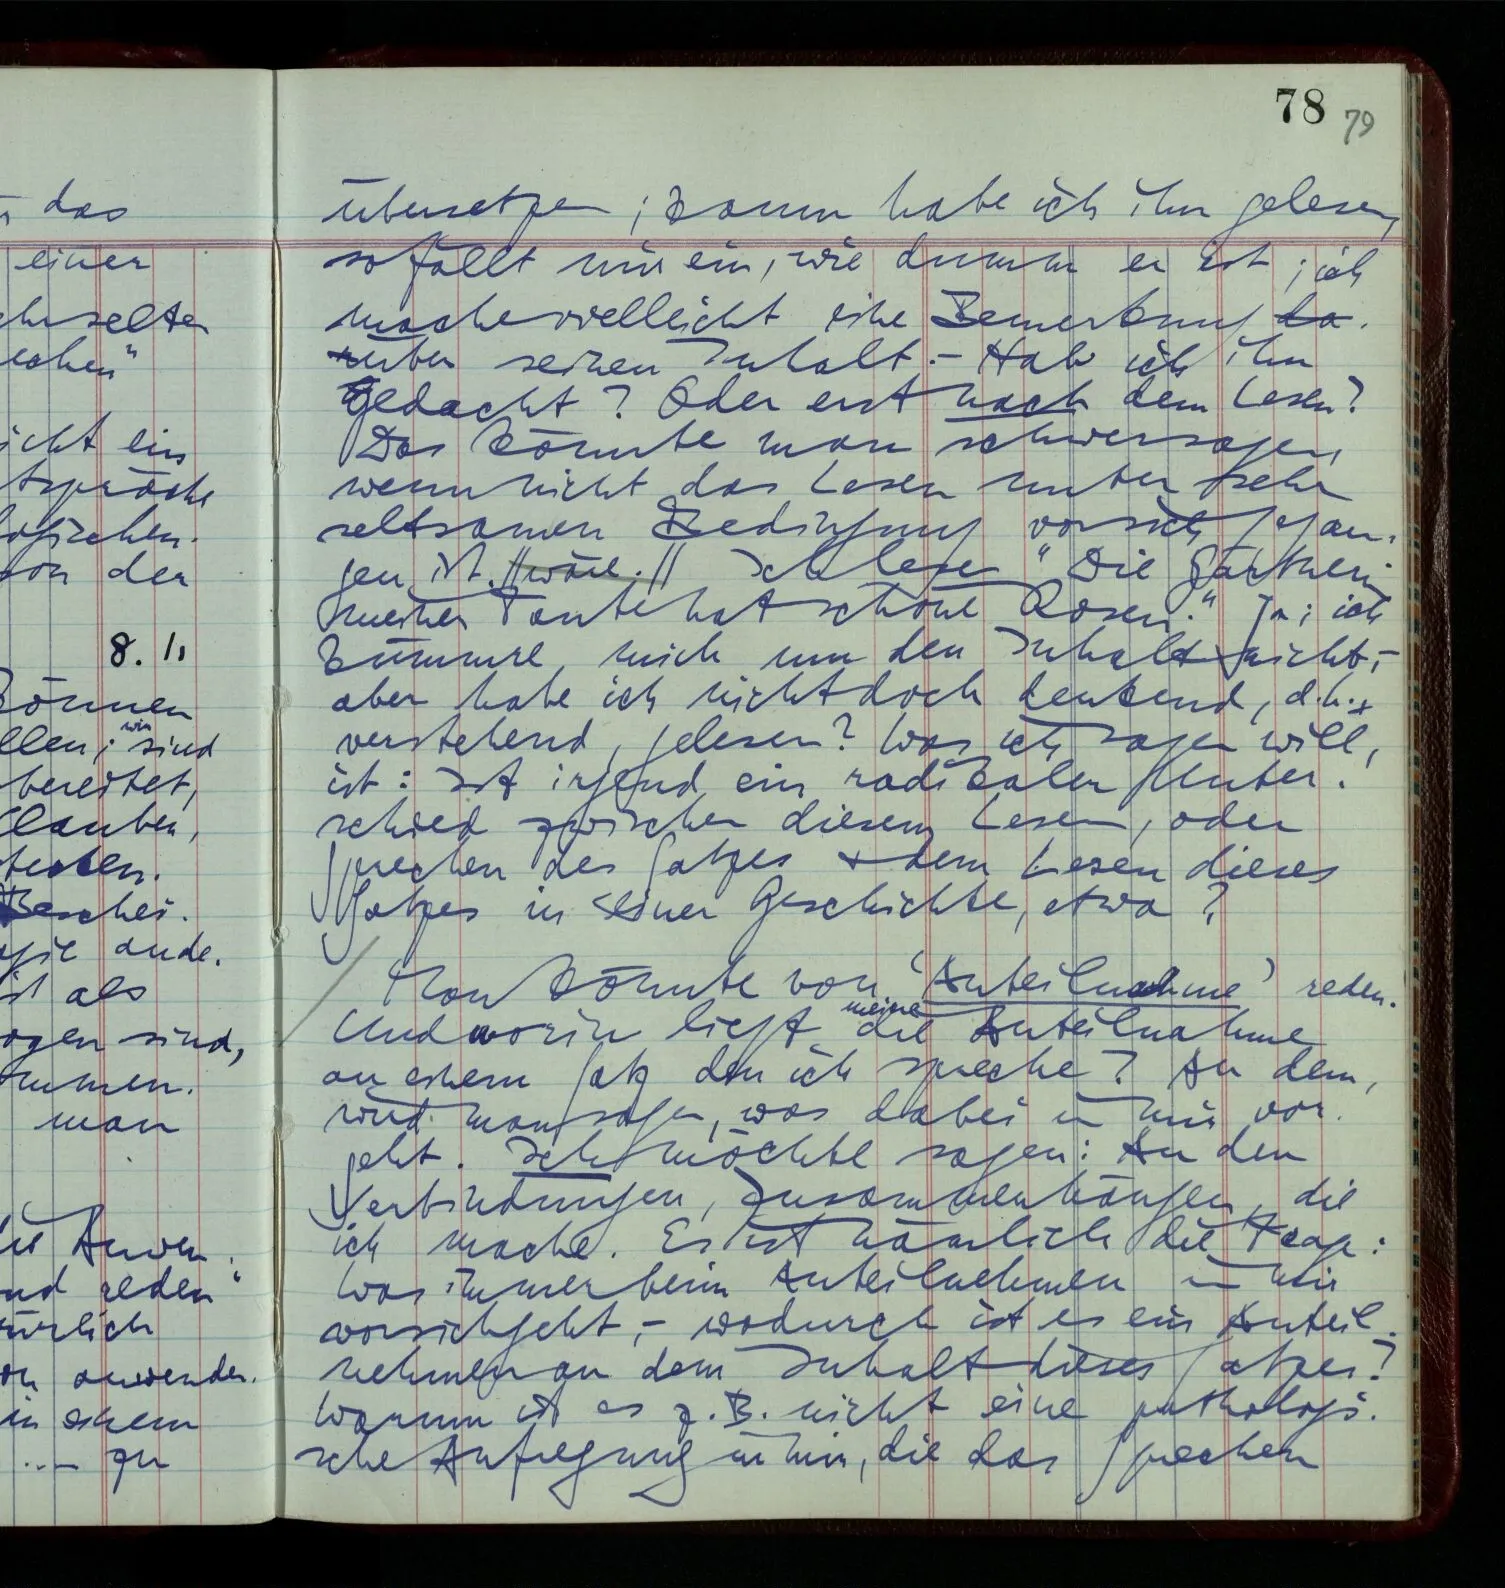 78 79
das
einer
chselten
echen"
icht ein
tspräche
logischen.
von der
8.11
können
ellen; wir sind
bereitet,
glauben,
Beschei-
ogie ande-
ist als
ogen sind,
ommen.
man
die Anwen-
und reden"
türlich
on anwenden.
in einem
... zu
übersetzen; kaum habe ich ihn gelesen,
so fällt mir ein, wie dumm er ist; ich
mache vielleicht eine Bemerkung da-
rüber seinen Inhalt. – Hab ich ihn
gedacht? Oder erst nach dem Lesen?
Das könnte man schwer sagen,
wenn nicht das Lesen unter sehr
seltsamen Bedingung vor sich gegan-
gen ist. // wäre. // Ich lese "Die Gärtnerin
meiner Tante hat schöne Rosen." Ja; ich
kümmre mich um den Inhalt nicht, –
aber habe ich nicht doch denkend, d.h.
verstehend, gelesen? Was ich sagen will,
ist: Ist irgend ein radikaler Unter-
schied zwischen diesem Lesen, oder
Sprechen des Satzes & dem Lesen dieses
Satzes in einer Geschichte, etwa?
Man könnte von 'Anteilnahme' reden.
Und worin liegt meine die Anteilnahme
an einem Satz den ich spreche? An dem,
wird man sagen, was dabei in mir vor-
geht. Ich möchte sagen: An den
Verbindungen, Zusammenhängen, die
ich mache. Es ist nämlich die Frage:
Was immer beim Anteilnehmen in mir
vorsichgeht, – wodurch ist es ein Anteil-
nehmen an dem Inhalt dieses Satzes?
Warum ist es z.B. nicht eine pathologi-
sche Aufregung in mir, die das Sprechen